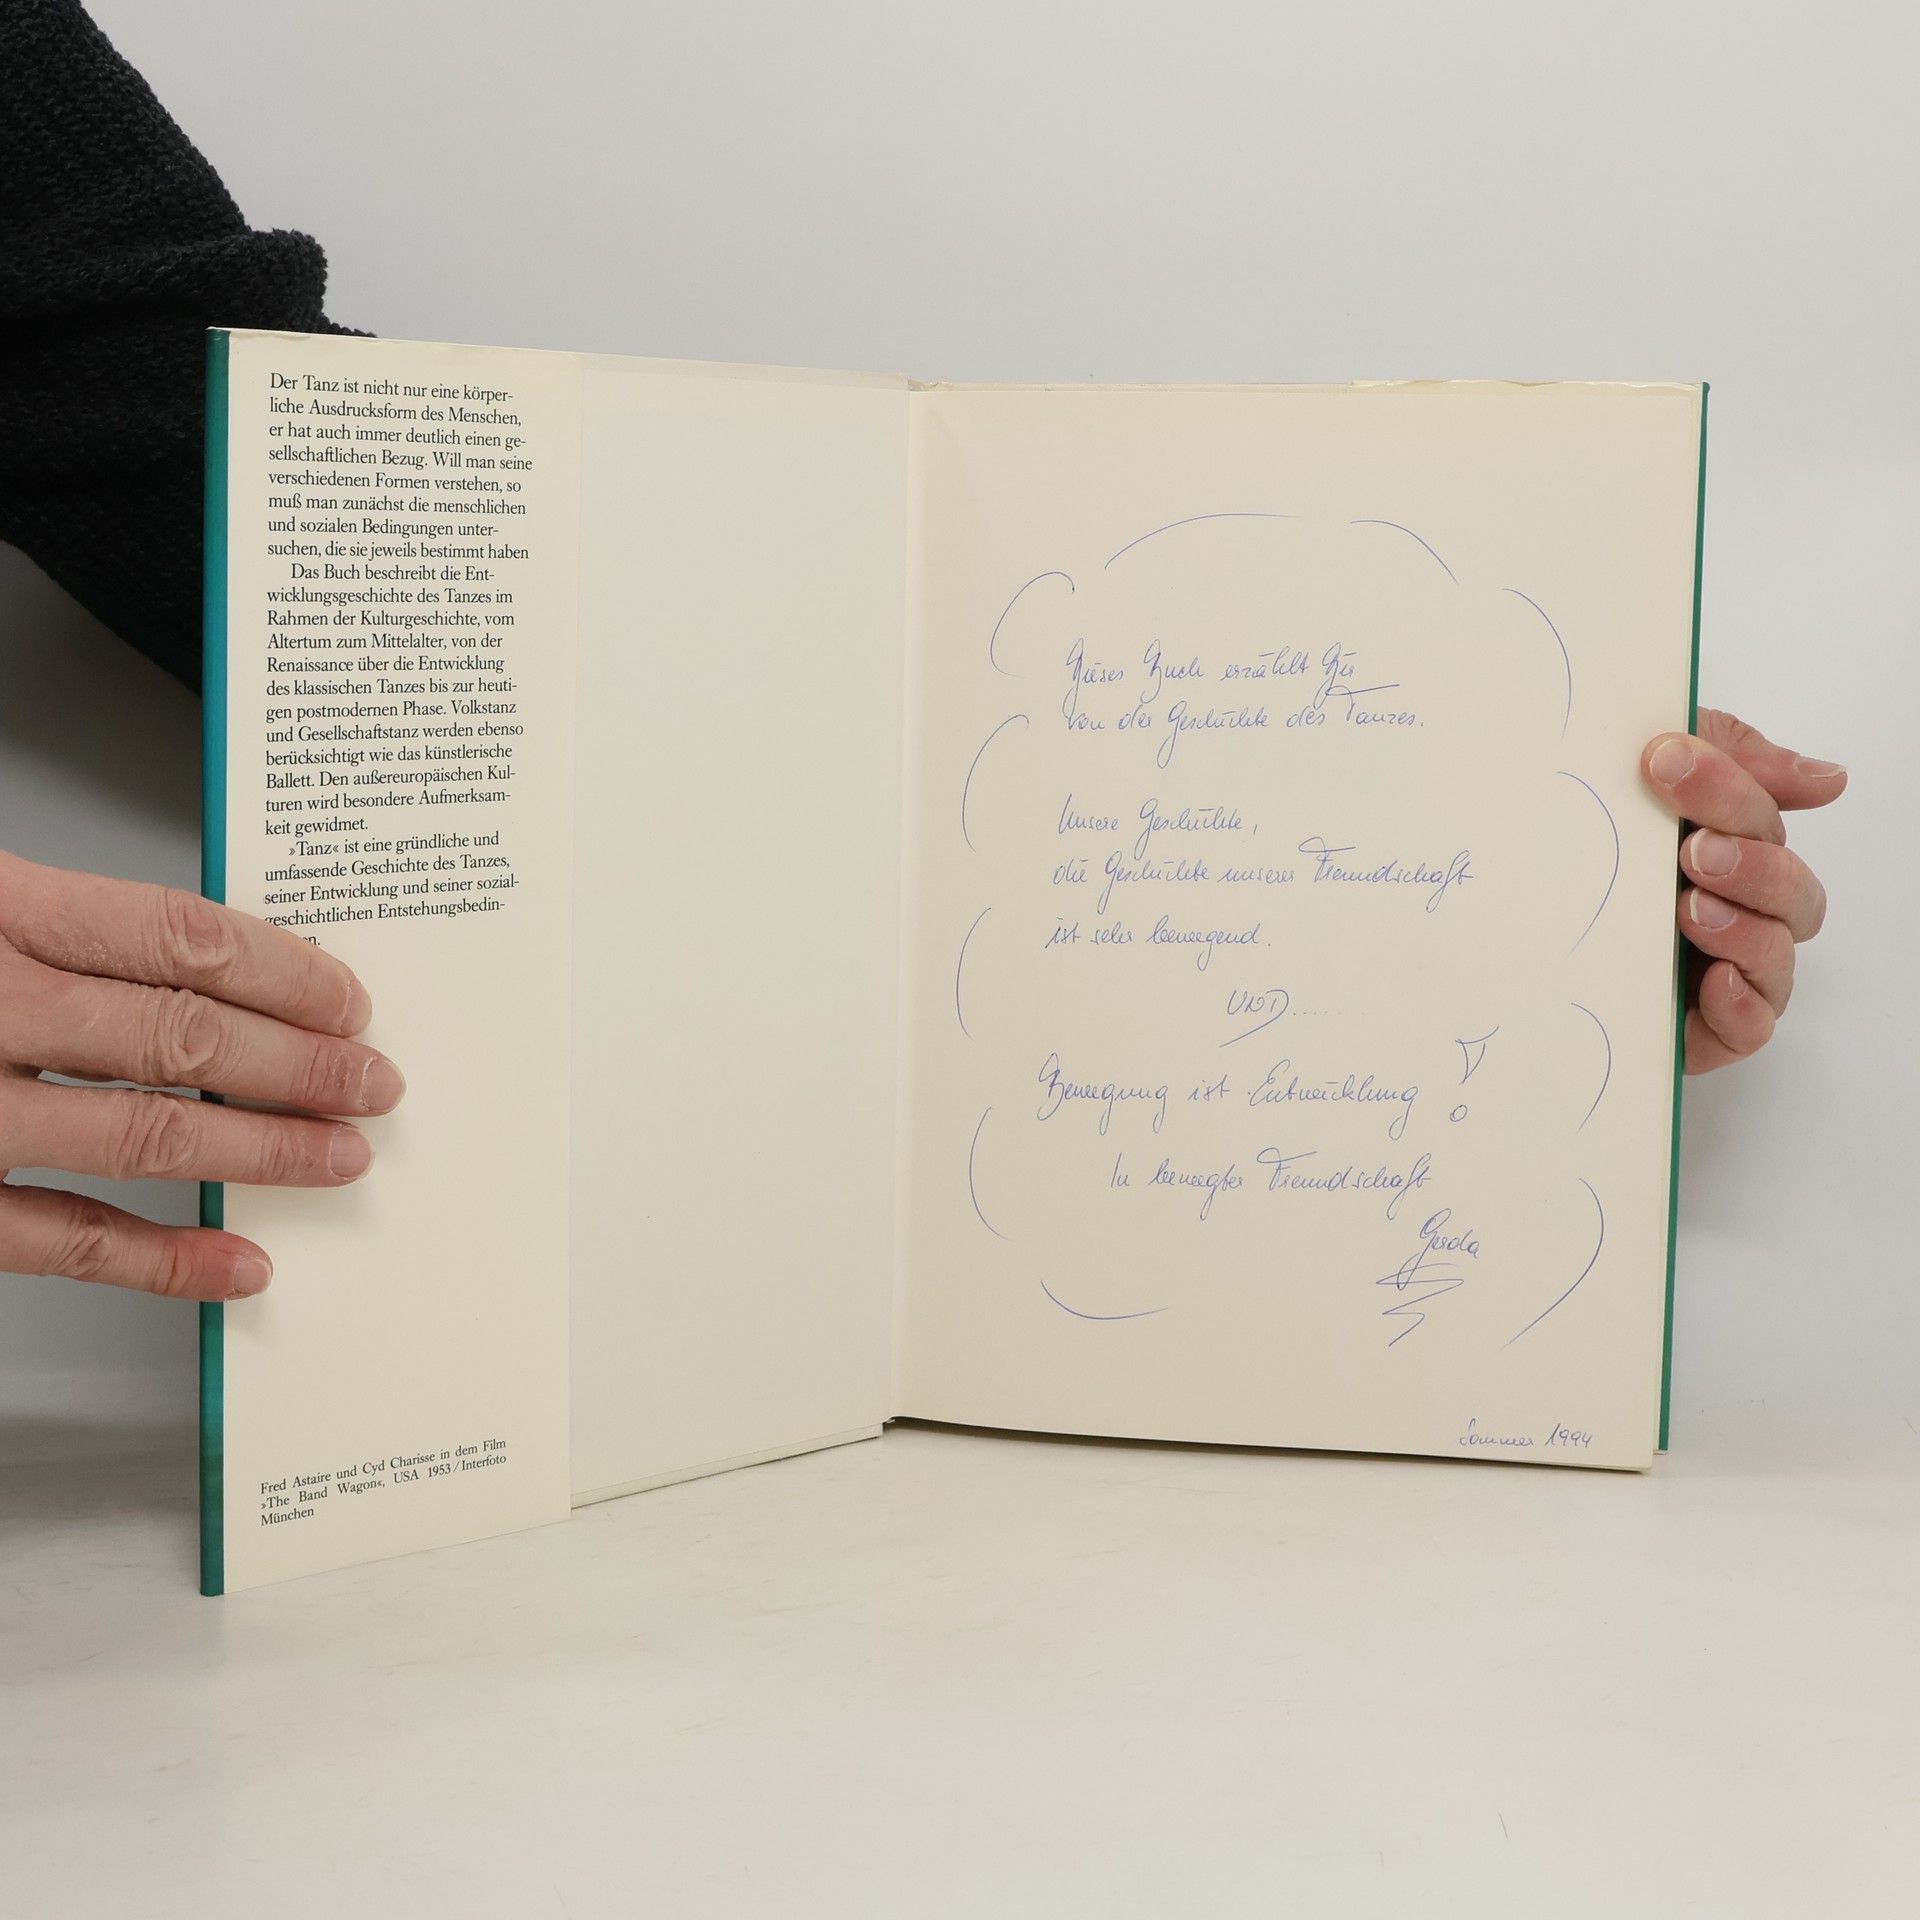 Der Tanz ist nicht nur eine körper-
liche Ausdrucksform des Menschen,
er hat auch immer deutlich einen ge-
sellschaftlichen Bezug. Will man seine
verschiedenen Formen verstehen, so
muß man zunächst die menschlichen
und sozialen Bedingungen unter-
suchen, die sie jeweils bestimmt haben
Das Buch beschreibt die Ent-
wicklungsgeschichte des Tanzes im
Rahmen der Kulturgeschichte, vom
Altertum zum Mittelalter, von der
Renaissance über die Entwicklung
des klassischen Tanzes bis zur heuti-
gen postmodernen Phase. Volkstanz
und Gesellschaftstanz werden ebenso
berücksichtigt wie das künstlerische
Ballett. Den außereuropäischen Kul-
turen wird besondere Aufmerksam-
keit gewidmet.
»Tanz« ist eine gründliche und
umfassende Geschichte des Tanzes,
seiner Entwicklung und seiner sozial-
geschichtlichen Entstehungsbedin-
en.
Fred Astaire und Cyd Charisse in dem Film
»The Band Wagon«, USA 1953/Interfoto
München
Dieses Buch erzählt Dir
von der Geschichte des Tanzes.
Unsere Geschichte,
die Geschichte unserer Freundschaft
ist sehr bewegend.
UND......
Bewegung ist Entwicklung !
In bewegter Freundschaft
Gerda
Sommer 1994